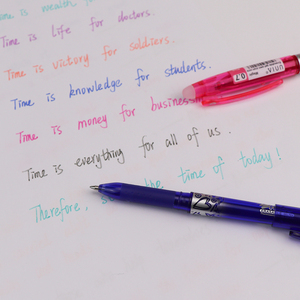 Time is
Time is life for doctors.
Time is victory for soldiers.
Time is knowledge for students.
Time is money for business
Time is everything for all of us.
Therefore, the time of today!
0.7